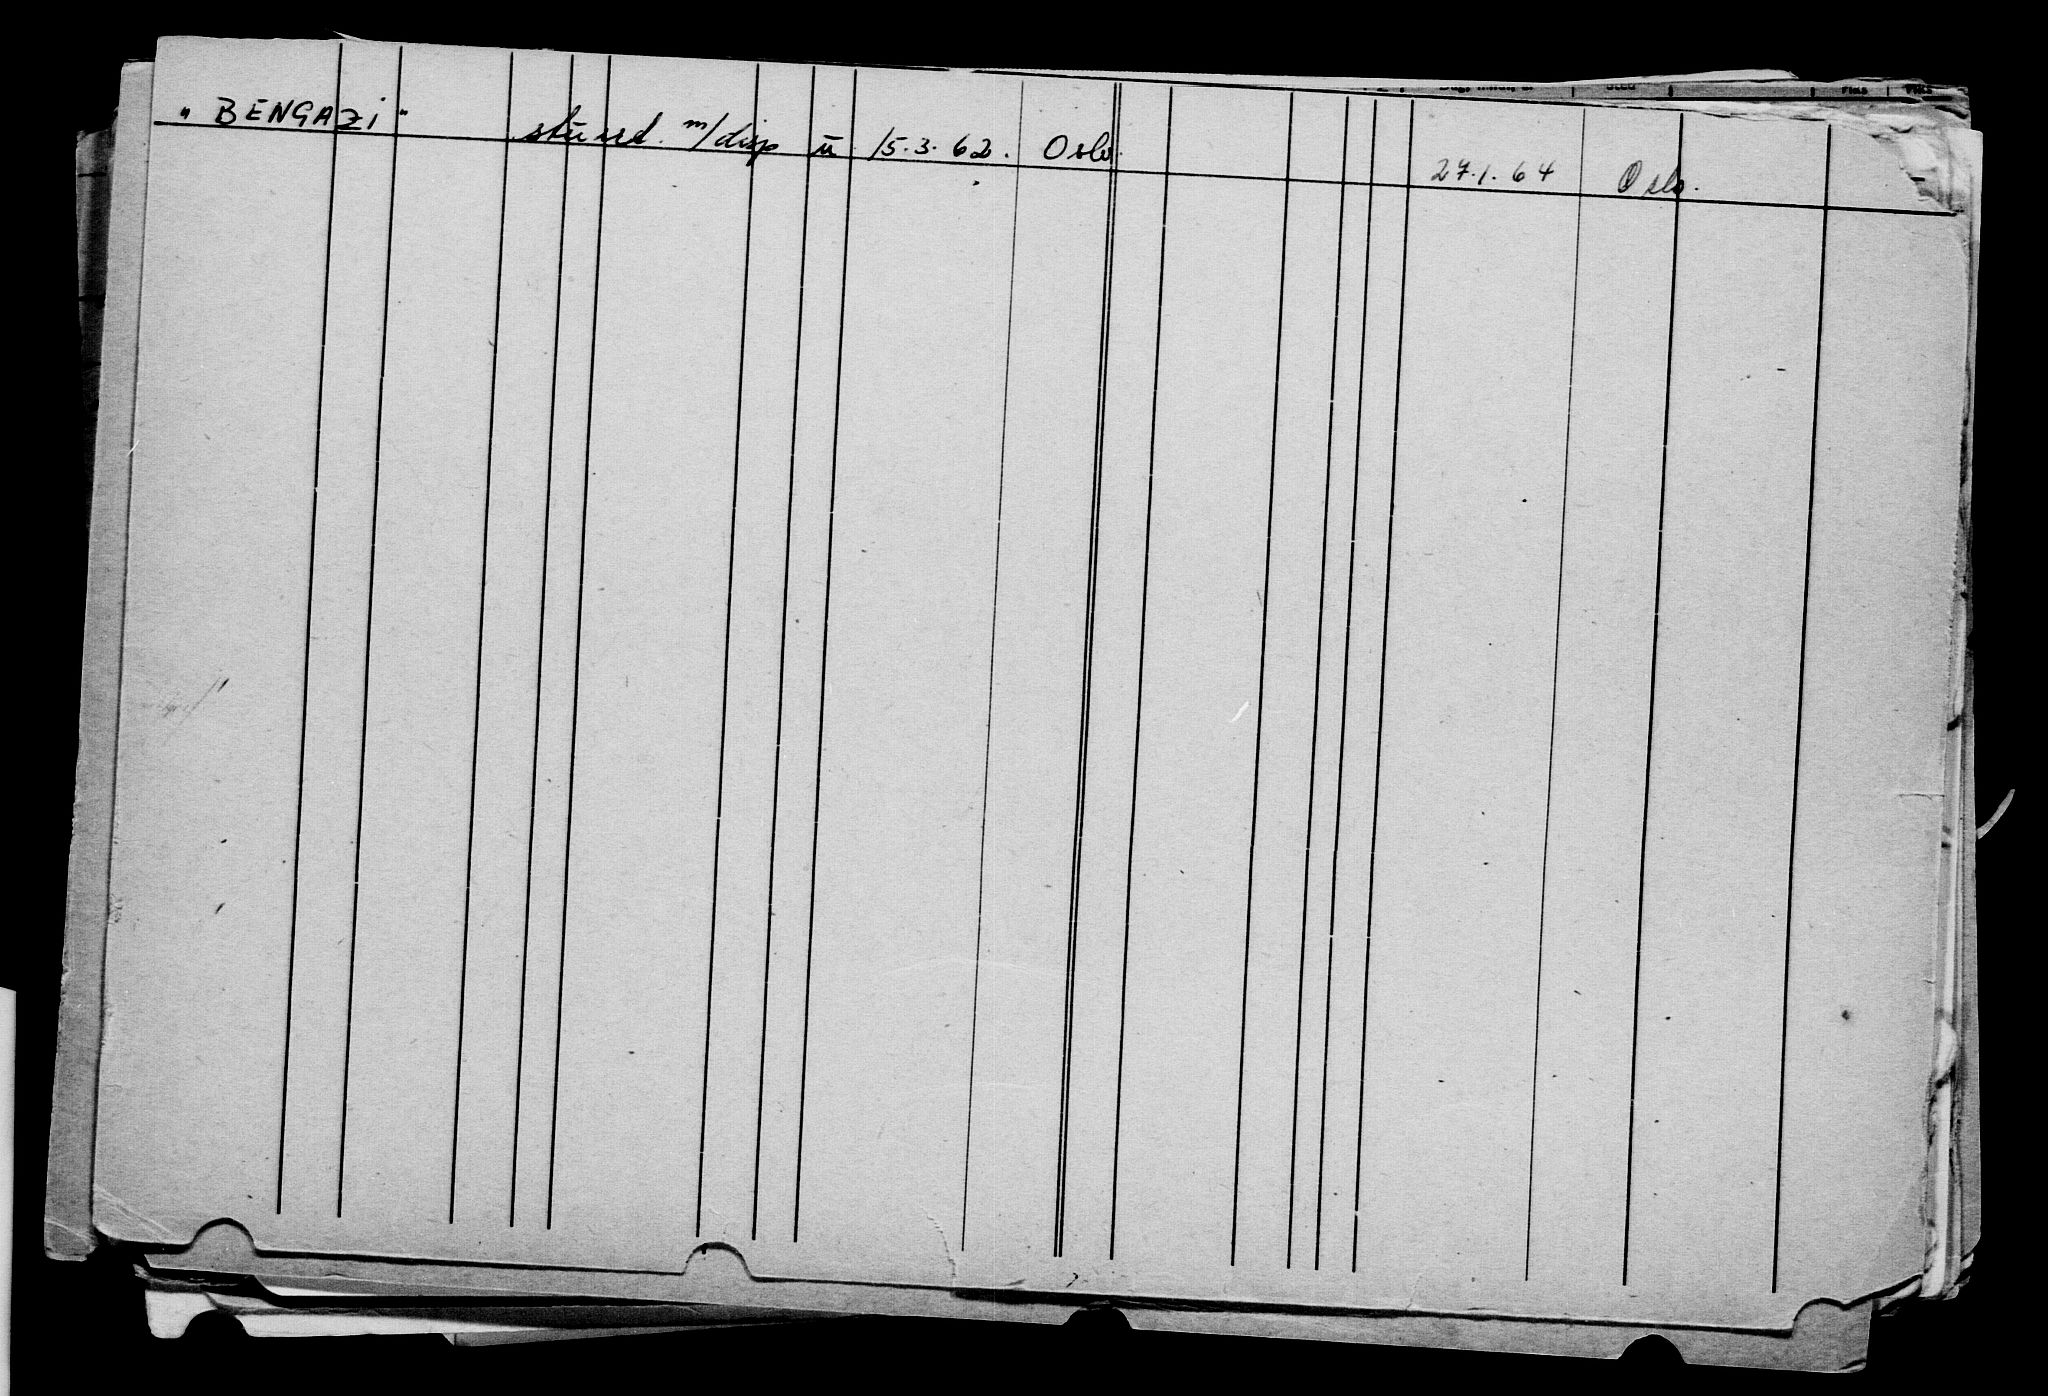 Sted
"BENGAZI" stürd. m/disp ü 15.3.62. Oslo. 27.1.64 Oslo.